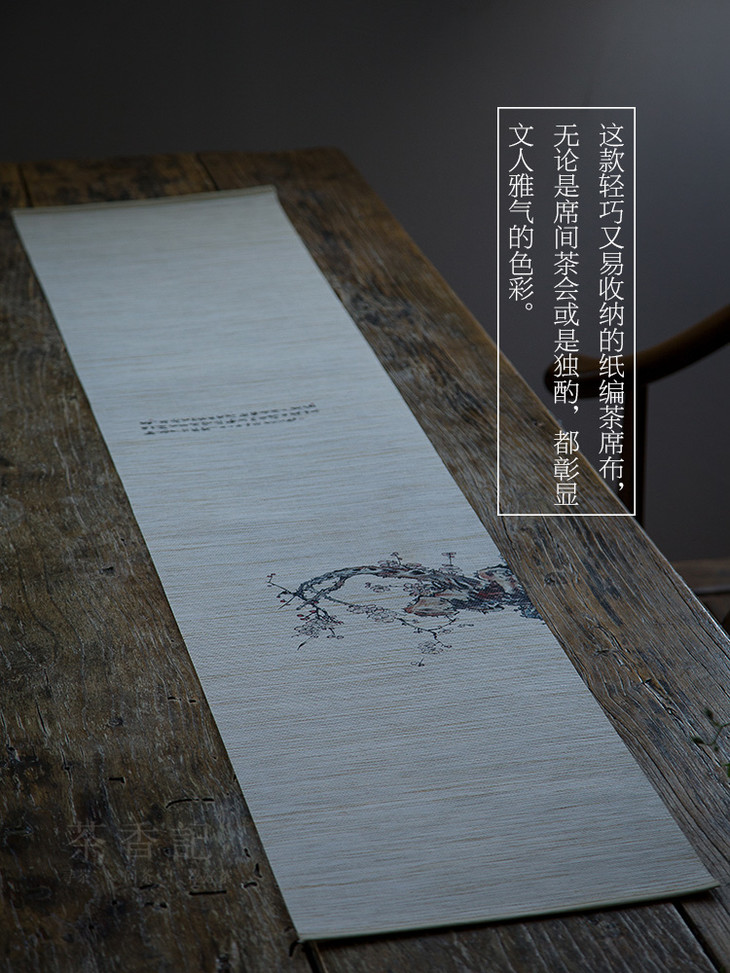 这款轻巧又易收纳的纸编茶席布，
无论是席间茶会或是独酌，都彰显
文人雅气的色彩。
茶香記